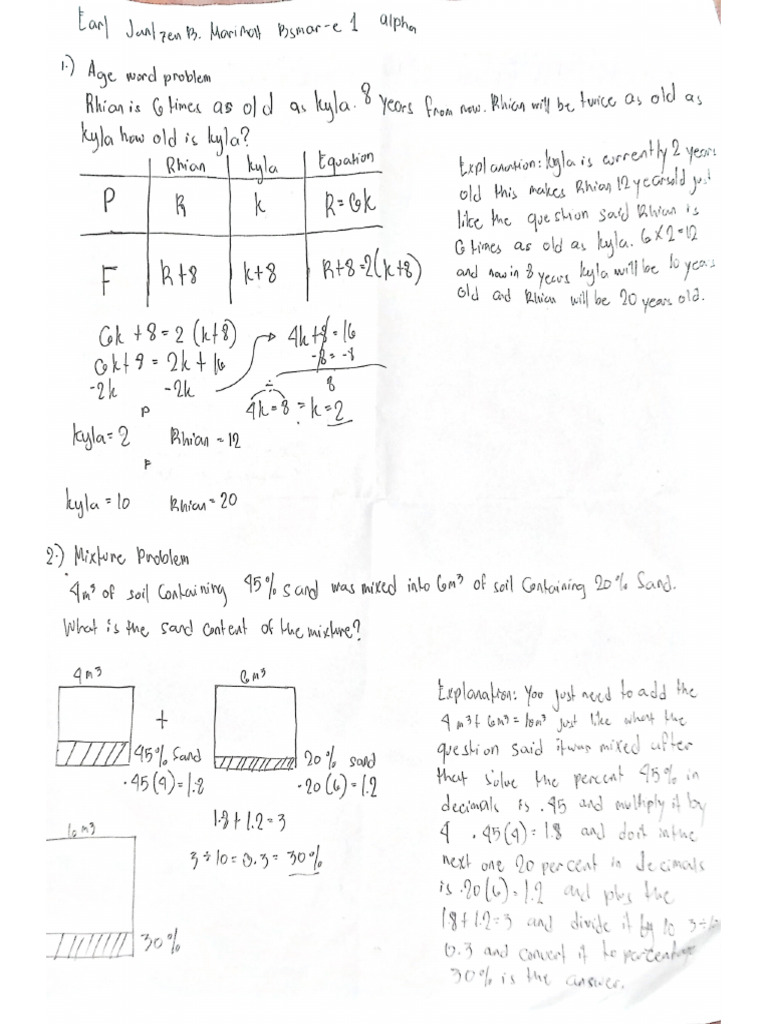 Earl Jantzen B. Marinall Bsmar-e 1 alpha
1.) Age word problem
Rhian is 6 times as old as kyla. 8 years from now. Rhian will be twice as old as
kyla how old is kyla?
Rhian kyla Equation
P R k R=6k
F R+8 k+8 R+8=2(k+8)
6k+8=2(k+8)
6k+8=2k+16
-2k -2k
4k+8=16
-8=-8
8
÷
4k=8=k=2
P
kyla=2 Rhian=12
F
kyla=10 Rhian=20
Explanation: kyla is currently 2 years
old this makes Rhian 12 years old just
like the question said Rhian is
6 times as old as kyla. 6x2=12
and now in 8 years kyla will be 10 years
old and Rhian will be 20 years old.
2.) Mixture Problem
4m³ of soil containing 45% sand was mixed into 6m³ of soil containing 20% Sand.
What is the sand content of the mixture?
4m³ 6m³
+
45% Sand 20% sand
.45(4)=1.8 .20(6)=1.2
1.8+1.2=3
3÷10=0.3=30%
10m³
30%
Explanation: You just need to add the
4m³+6m³=10m³ just like what the
question said it was mixed after
that solve the percent 45% in
decimals is .45 and multiply it by
4 .45(4)=1.8 and do it in the
next one 20 percent in decimals
is .20(6)=1.2 and plus the
1.8+1.2=3 and divide it by 10 3÷10
0.3 and convert it to percentage
30% is the answer.